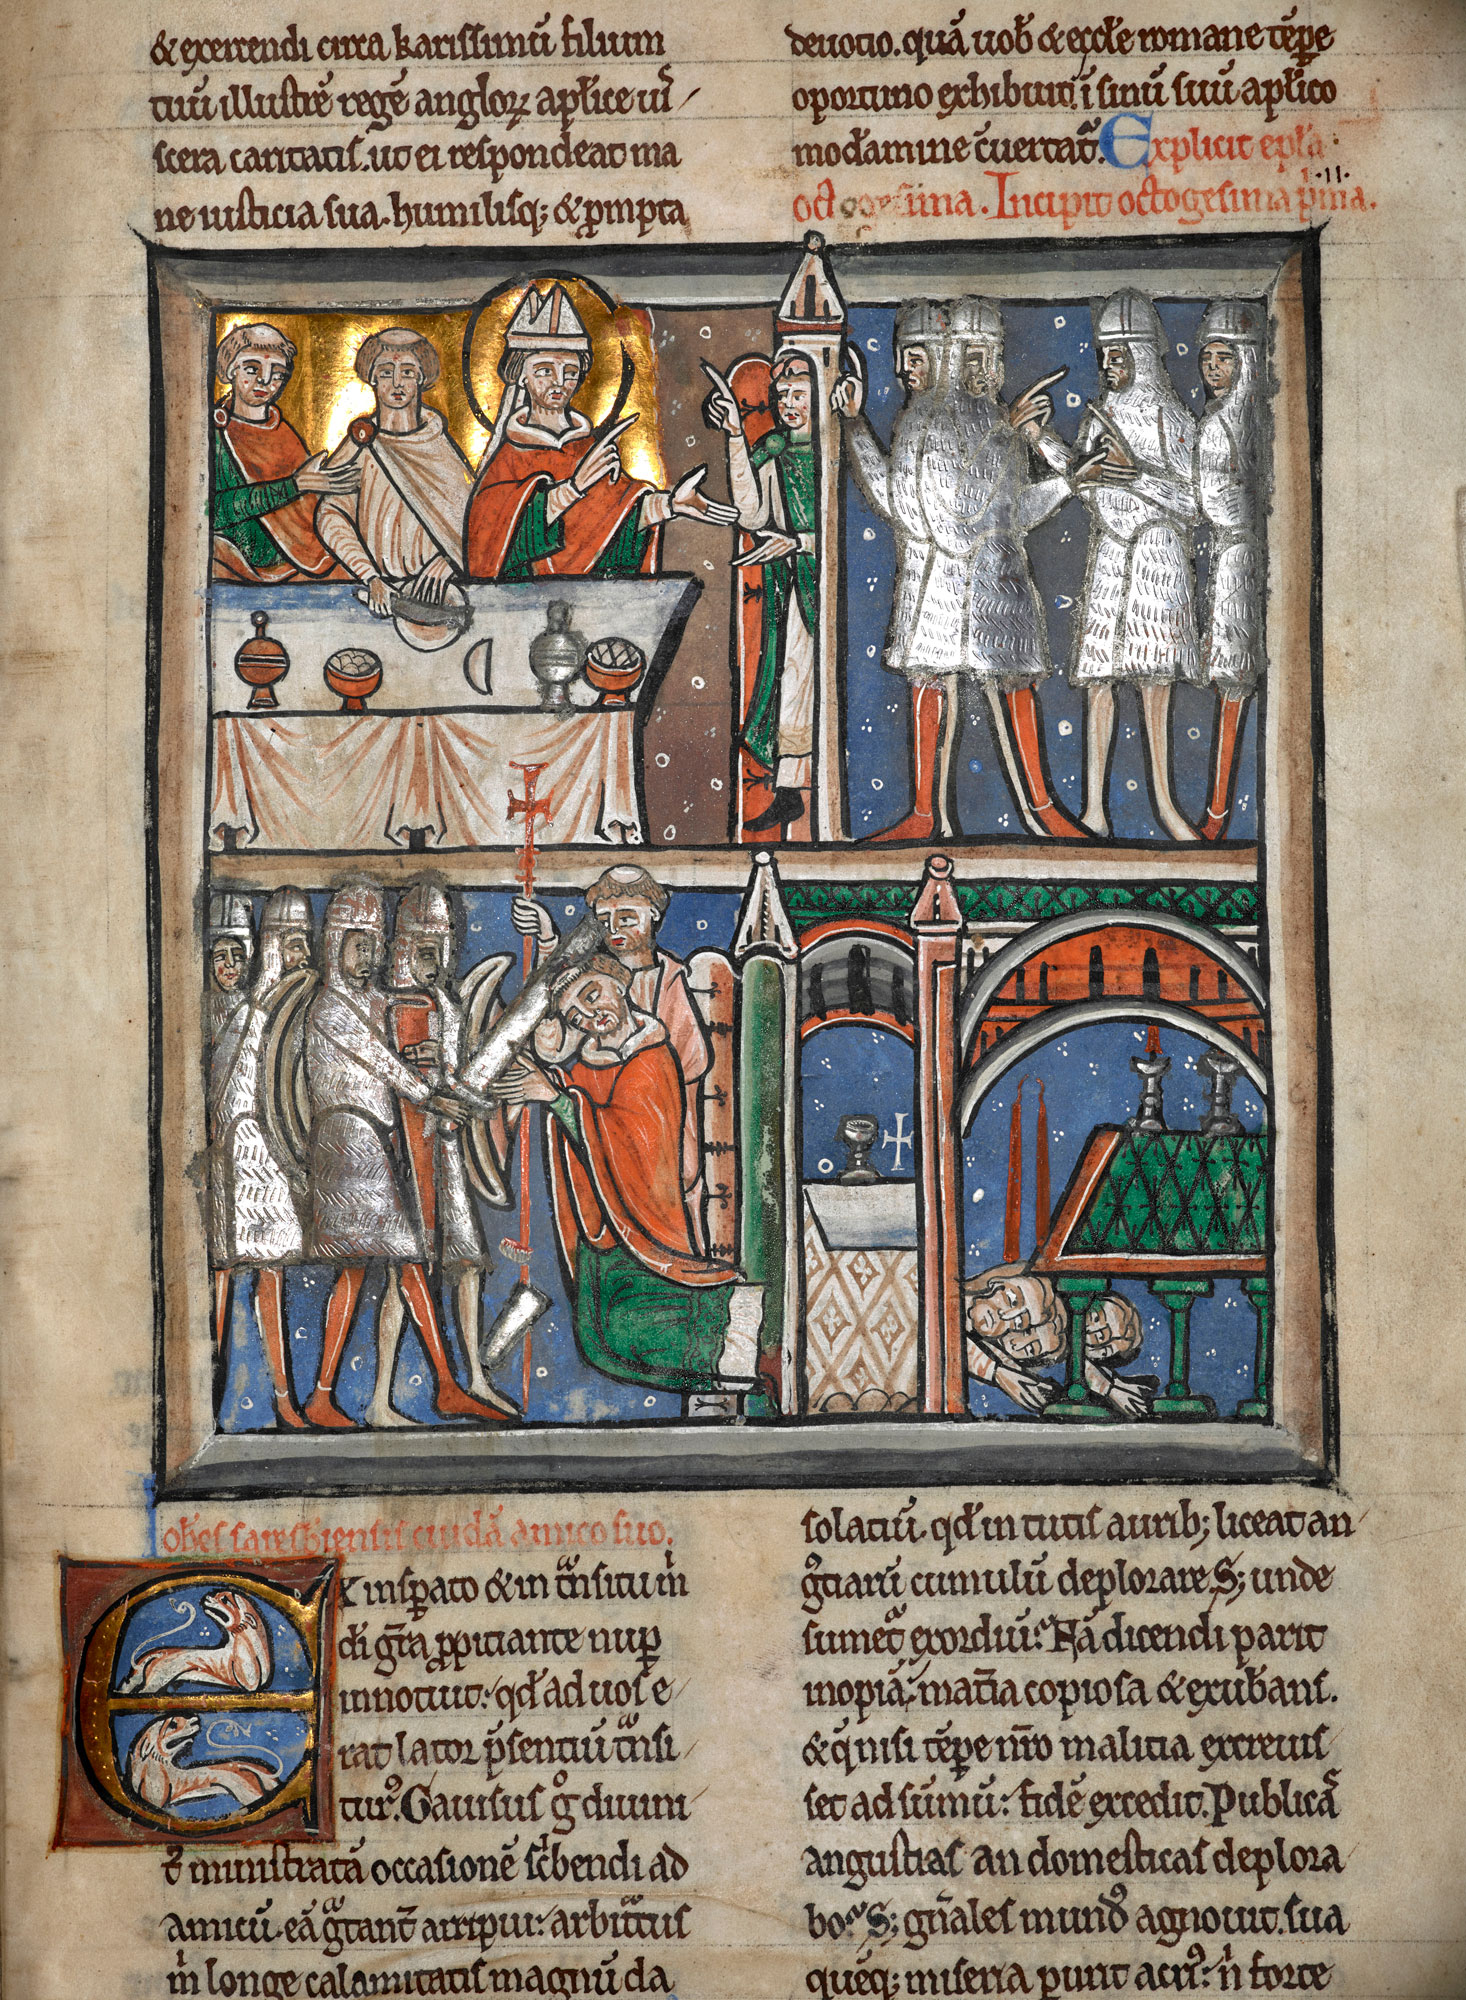 & exerrendi circa karissimū filium
tuū illustrē regē anglorꝝ aplīce uı̄
scera caritatis. ut ei respondeat ma
ne iusticia sua. humilisq; & ꝓmpta
deuotio. quā uob̄ & eccl̄e romane tēpe
oportuno exhibuit. ī sinū suū aplīco
mod̄amine ꝯuertat. Explicit ep̄la
octogesima. Incipit octogesima p̄ma.
Joh̄es saresb̄iensis cuidā amico suo.
Ex insꝑato & in tͣnsitu m̄
di gr̄a ꝓpitiante nuꝑ
innotuit: qd̄ ad uos e
rat lator p̄sentiū tͣnsi
turꝰ. Gauisus gͦ diuini
tꝰ ministratā occasionē sc̄bendi ad
amicū. eā gͣtant̄ arripui: arbitͣtus
m̄ longe calamitatis magnū da
solatiū. qd̄ in tutis aurib; liceat an
gͦtiarū cumulū deplorare. S; unde
sumet exordiū? Nā dicendi parit
inopiā, mat̄ia copiosa & exub̄ans.
& q̄ nisi tēpe nr̄o malitia excreuis
set ad sūmū: fidē excedit. Publicas
angustias an domesticas deplora
bo? S; gn̄ales mundꝰ agnouit. sua
quēq; miseria pūit acriꝰ: n̄ forte